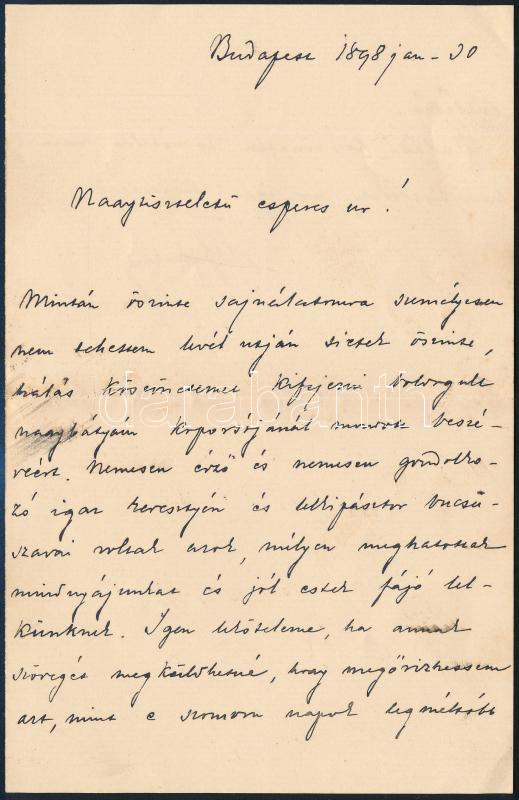 Budapest 1898 jan - 30
Nagytiszteletű esperes ur!
Miután őszinte sajnálatomra személyesen
nem tehettem levél utján sietek őszinte,
hálás köszönetemet kifejezni boldogult
nagybátyám koporsójánál mondott beszé-
déért. Nemesen érző és nemesen gondolko-
zó igaz keresztyén és lelkipásztor bucsu-
szavai voltak azok, mélyen meghatottak
mindnyájunkat és jól estek fájó lel-
künknek. Igen lekötelezne, ha annak
szövegét megküldhetné, hogy megőrizhessem
azt, mint e szomoru napok legméltóbb
darabanth